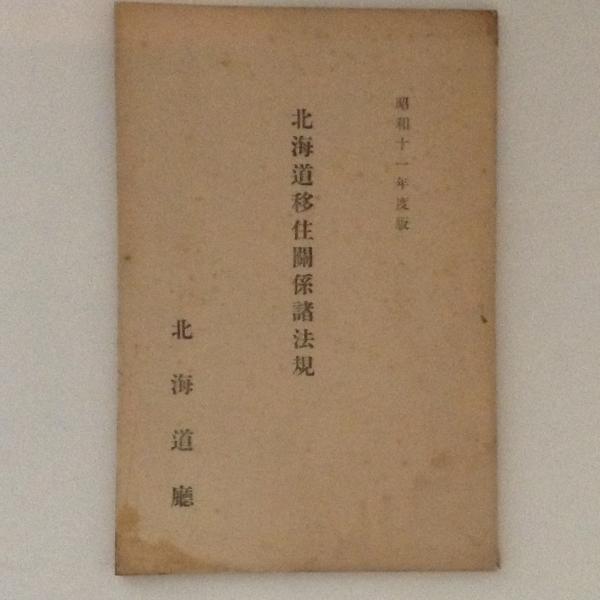 昭和十一年度版
北海道移住關係諸法規
北海道廳